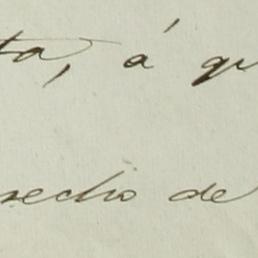 ta, á qu
recho de